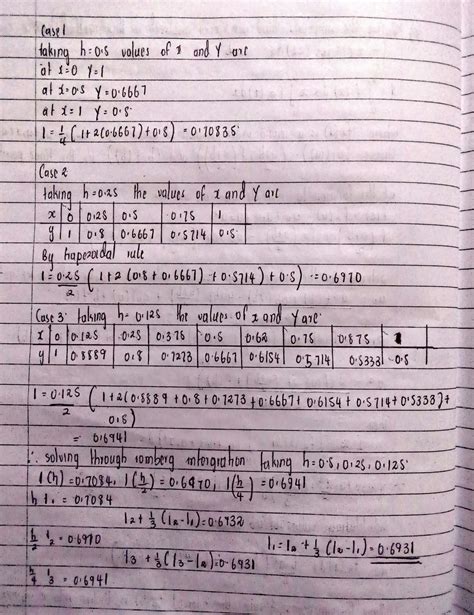 Case 1
taking h=0.5 values of x and y are
at x=0 y=1
at x=0.5 y=0.6667
at x=1 y=0.5
I=1/4(1+2(0.6667)+0.5) =0.70835
Case 2
taking h=0.25 the values of x and y are
x 0 0.25 0.5 0.75 1
y 1 0.8 0.6667 0.5714 0.5
By trapezoidal rule
I=0.25/2 (1+2(0.8+0.6667)+0.5714)+0.5) =0.6970
Case 3: taking h=0.125 the values of x and y are
x 0 0.125 0.25 0.375 0.5 0.62 0.75 0.875 1
y 1 0.8889 0.8 0.7273 0.6667 0.6154 0.5714 0.5333 0.5
I=0.125/2 (1+2(0.8889+0.8+0.7273+0.6667+0.6154+0.5714+0.5333)+
0.5)
=0.6941
∴ solving through romberg intergration taking h=0.5,0.25,0.125
I(h)=0.7084, I(h/2)=0.6970, I(h/4)=0.6941
h I₁=0.7084
I₂+1/3(I₂-I₁)=0.6932
h/2 I₂=0.6970 I₁=I₂+1/3(I₂-I₁)=0.6931
I₃+1/3(I₃-I₂)=0.6931
h/4 I₃=0.6941